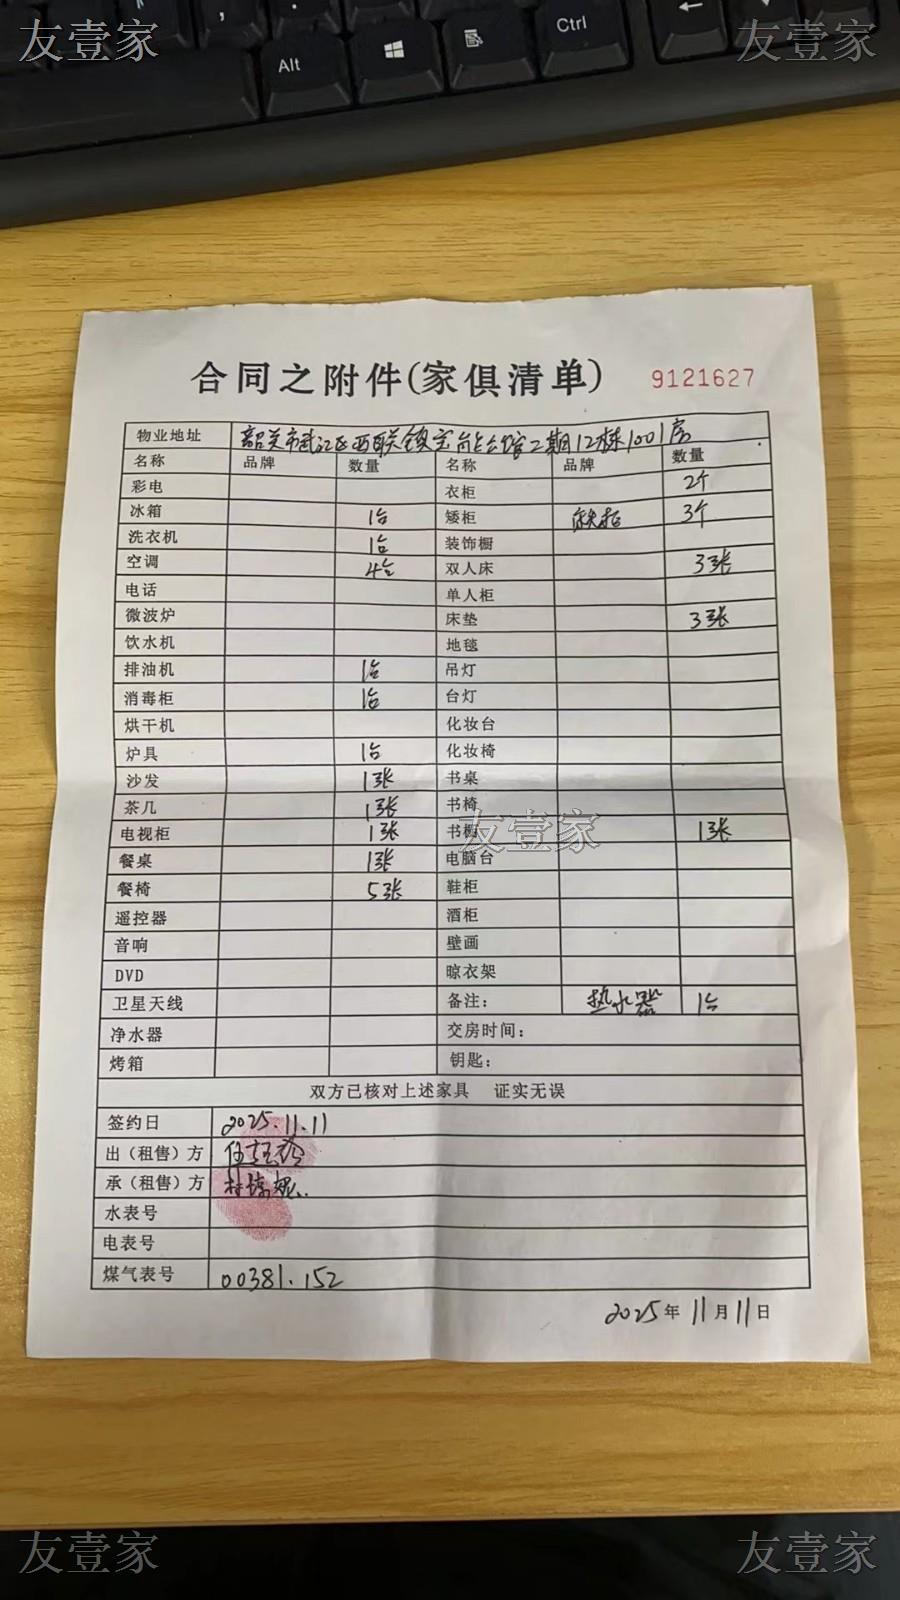 友壹家 友壹家
Alt Ctrl
合同之附件(家俱清单) 9121627
物业地址 韶关市武江区西联镇 二期12栋1001房
名称 品牌 数量 名称 品牌 数量
彩电 衣柜 2个
冰箱 1台 矮柜 床头柜 3个
洗衣机 1台 装饰橱
空调 4台 双人床 3张
电话 单人柜
微波炉 床垫 3张
饮水机 地毯
排油机 1台 吊灯
消毒柜 1台 台灯
烘干机 化妆台
炉具 1台 化妆椅
沙发 1张 书桌
茶几 1张 书椅
电视柜 1张 书橱 1张
友壹家
餐桌 1张 电脑台
餐椅 5张 鞋柜
遥控器 酒柜
音响 壁画
DVD 晾衣架
卫星天线 备注: 热水器 1台
净水器 交房时间:
烤箱 钥匙:
双方已核对上述家具 证实无误
签约日 2025.11.11
出(租售)方
承(租售)方
水表号
电表号
煤气表号 00381.152
2025年11月11日
友壹家 友壹家